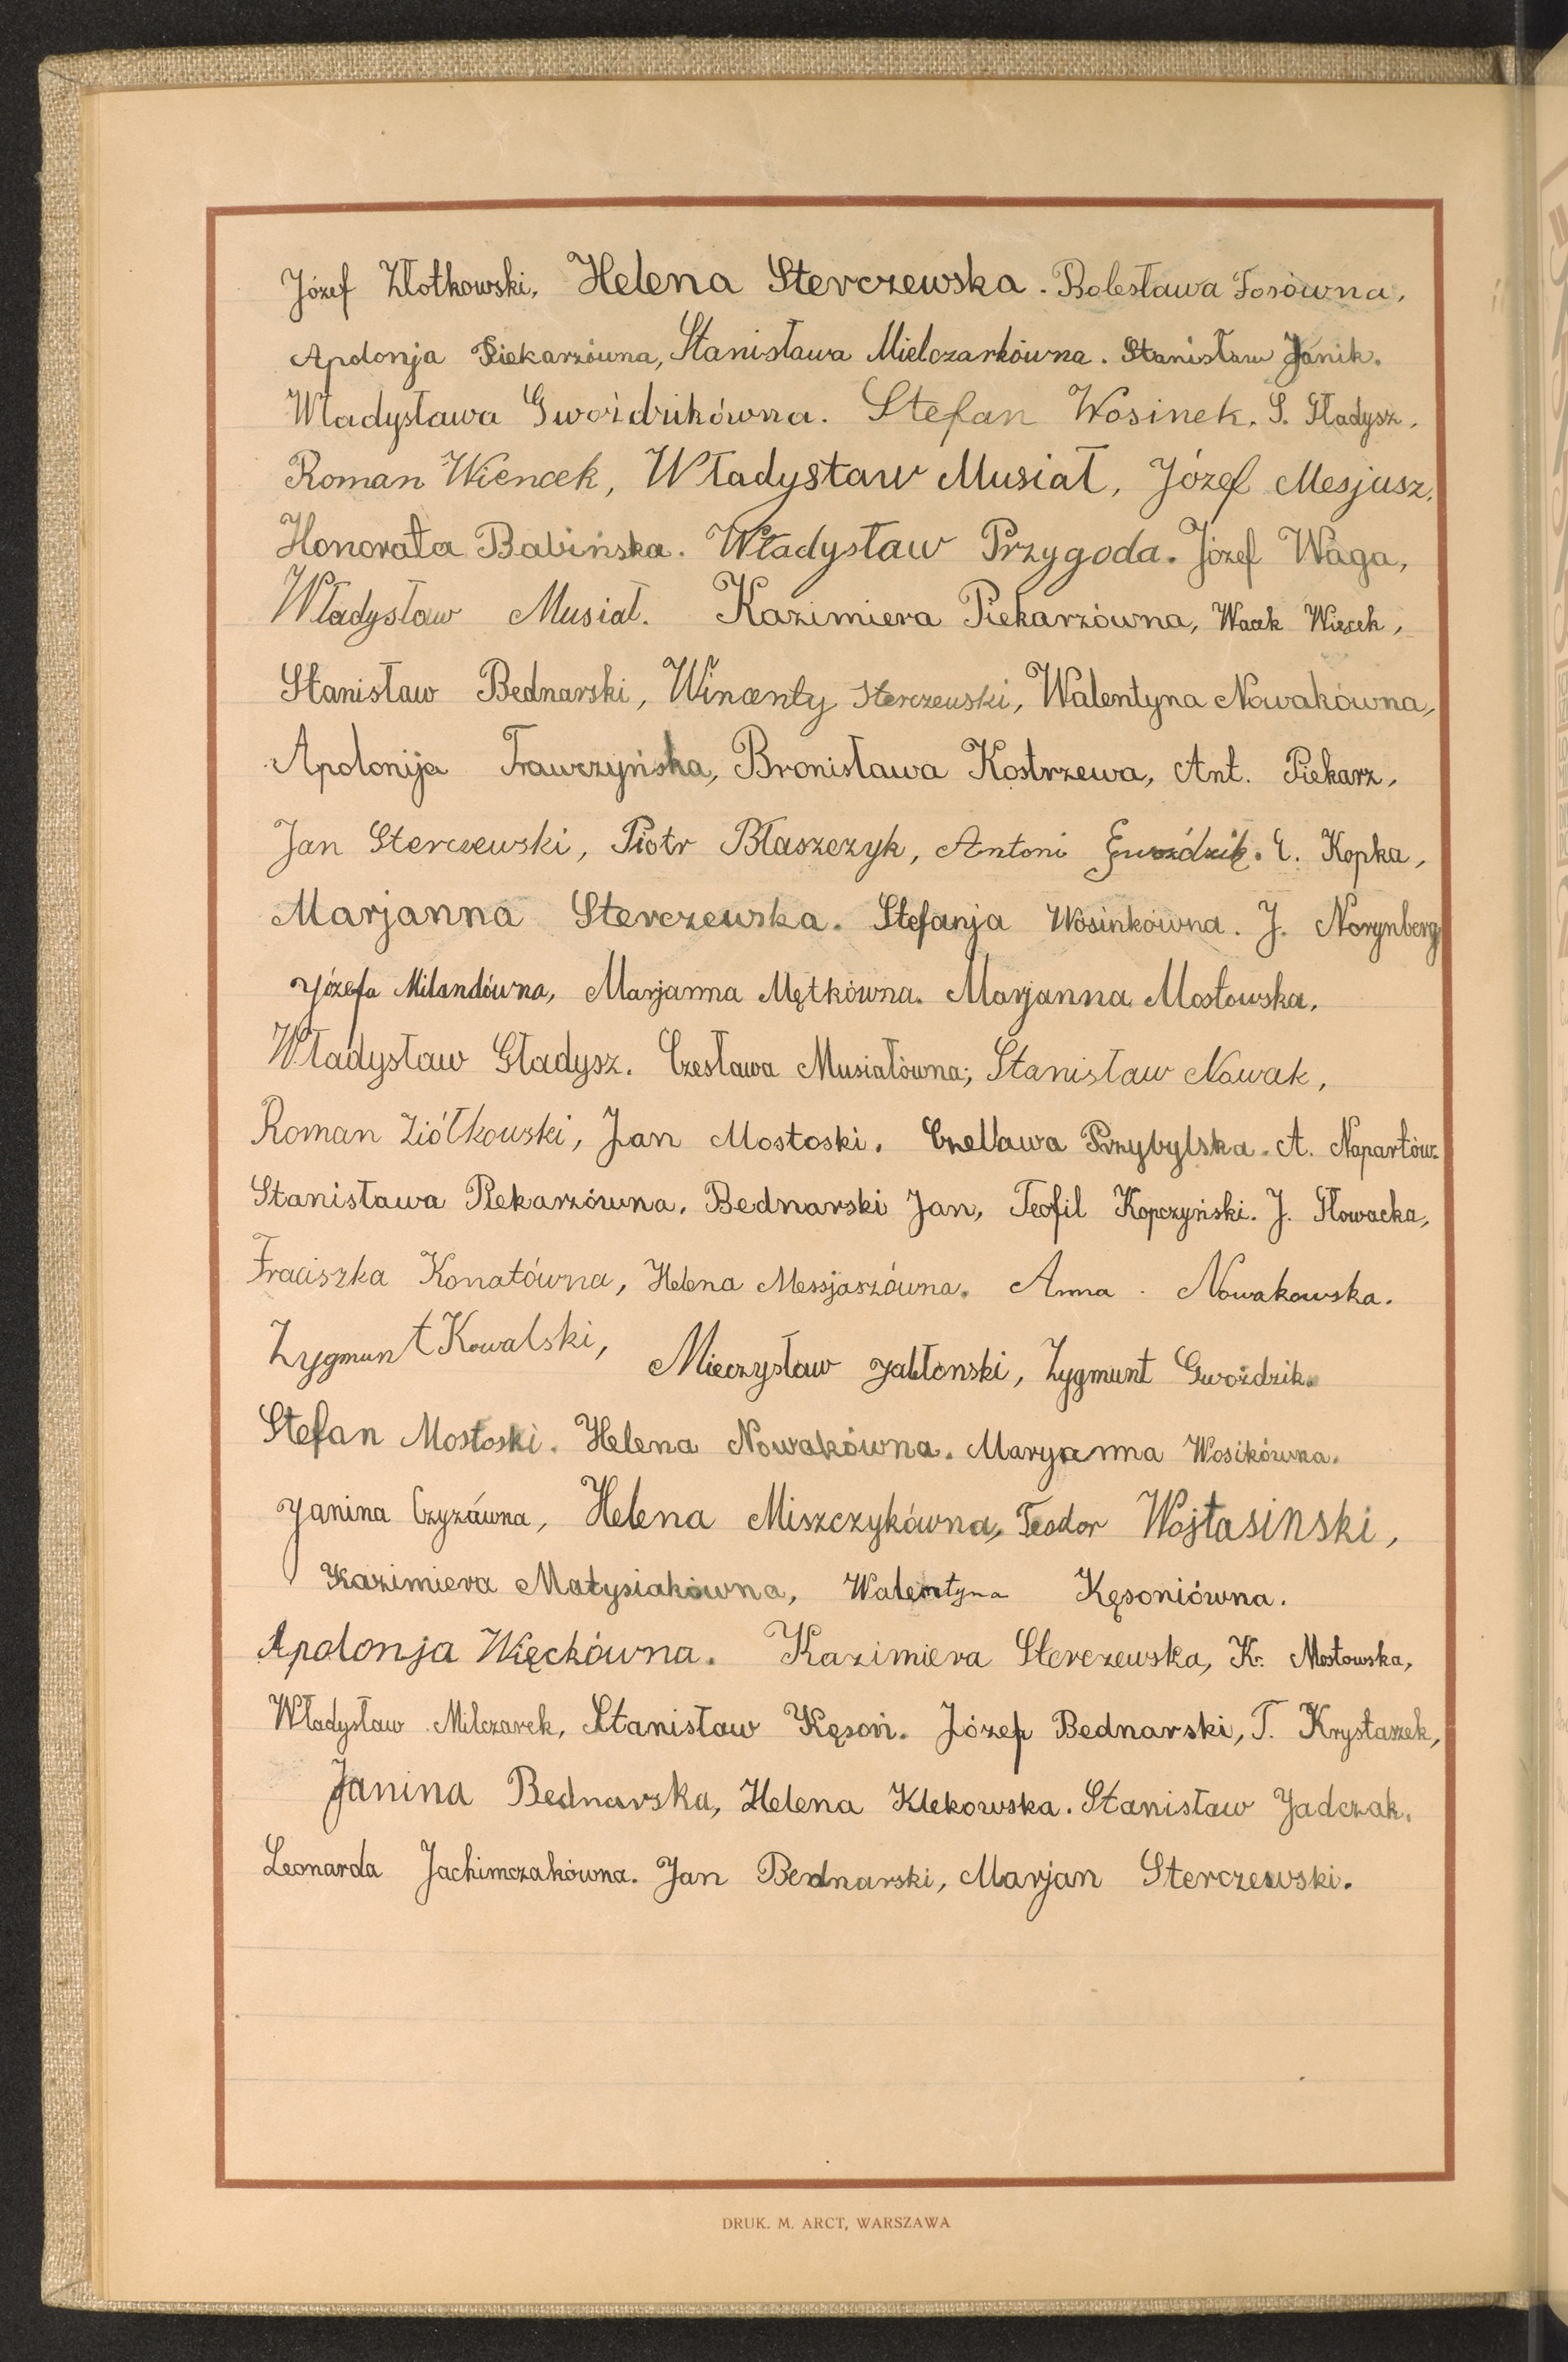 Józef Złotkowski, Helena Sterczewska. Bolesława Fosówna,
Apolonja Piekarzówna, Stanisława Mielczarkówna. Stanisław Janik.
Władysława Gwoździkówna. Stefan Wosinek. S. Gładysz,
Roman Wiencek, Władysław Musiał, Józef Mesjusz,
Honorata Babińska. Władysław Przygoda. Józef Waga,
Władysław Musiał. Kazimiera Piekarzówna, Wacek Więcek,
Stanisław Bednarski, Wincenty Sterczewski, Walentyna Nowakówna,
Apolonija Trawczyńska, Bronisława Kostrzewa, Ant. Piekarz,
Jan Sterczewski, Piotr Błaszczyk, Antoni Gwoździk. E. Kopka,
Marjanna Sterczewska. Stefanja Wosinkówna. J. Norynberg
Józefa Milandówna, Marjanna Mętkówna. Marjanna Mostowska,
Władysław Gładysz. Czesława Musiałówna, Stanisław Nowak,
Roman Ziółkowski, Jan Mostoski. Czesława Przybylska. A. Napartów.
Stanisława Piekarzówna, Bednarski Jan, Teofil Kopczyński. J. Głowacka,
Fraciszka Konatówna, Helena Messjaszówna. Anna Nowakowska.
Zygmunt Kowalski, Mieczysław Jabłonski, Zygmunt Gwoździk.
Stefan Mostoski. Helena Nowakówna. Maryanna Wosikówna.
Janina Czyzówna, Helena Miszczykówna, Teodor Wojtasinski,
Kazimiera Matysiakówna, Walentyna Kęsoniówna.
Apolonja Więckówna. Kazimiera Sterczewska, K. Mostowska,
Władysław Milczarek, Stanisław Kęsoń. Józef Bednarski, T. Krystaszek,
Janina Bednarska, Helena Klekowska. Stanisław Jadczak.
Leonarda Jachimczakówna. Jan Bednarski, Marjan Sterczewski.
DRUK. M. ARCT, WARSZAWA